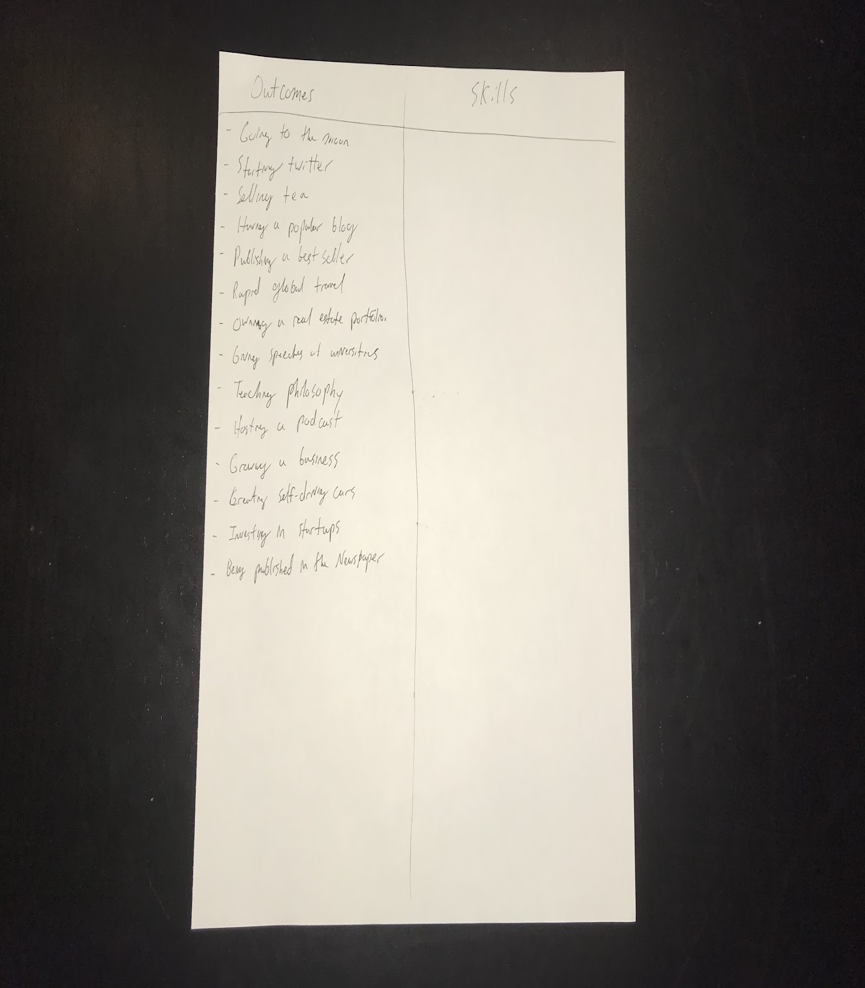 Outcomes
Skills
- Going to the moon
- Starting twitter
- Selling tea
- Having a popular blog
- Publishing a best seller
- Rapid global travel
- Owning a real estate portfolio.
- Giving speeches at universities
- Teaching philosophy
- Hosting a podcast
- Growing a business
- Creating self-driving cars
- Investing in startups
- Being published in the Newspaper